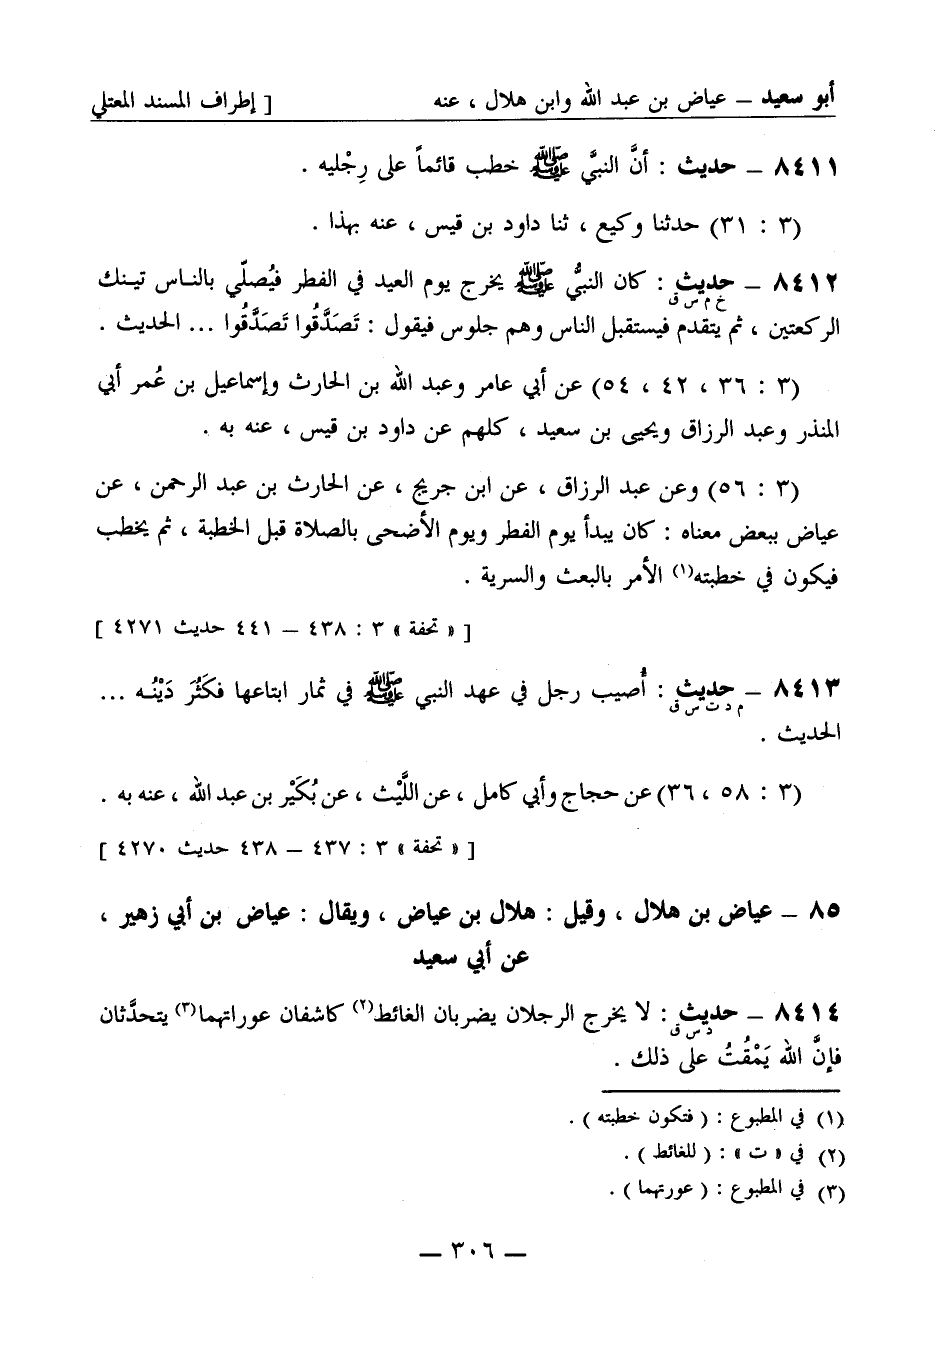 أبو سعيد – عياض بن عبد الله وابن هلال ، عنه [ إطراف المسند المعتلي
٨٤١١ – حديث : أنَّ النبيَّ ﷺ خطب قائماً على رِجْليه .
(٣ : ٣١) حدثنا وكيع ، ثنا داود بن قيس ، عنه بهذا .
٨٤١٢ – حديث : كان النبيُّ ﷺ يخرج يوم العيد في الفطر فيُصلّي بالنـاس تينـك
خ م س ق
الركعتين ، ثم يتقدم فيستقبل الناس وهم جلوس فيقول : تَصَدَّقُوا تَصَدَّقُوا ... الحديث .
(٣ : ٣٦ ، ٤٢ ، ٥٤) عن أبي عامر وعبد الله بن الحارث وإسماعيل بن عُمر أبي
المنذر وعبد الرزاق ويحيى بن سعيد ، كلهم عن داود بن قيس ، عنه به .
(٣ : ٥٦) وعن عبد الرزاق ، عن ابن جريج ، عن الحارث بن عبد الرحمن ، عن
عياض ببعض معناه : كان يبدأ يوم الفطر ويوم الأضحى بالصلاة قبل الخطبة ، ثم يخطب
فيكون في خطبته(١) الأمر بالبعث والسرية .
[ « تحفة » ٣ : ٤٣٨ – ٤٤١ حديث ٤٢٧١ ]
٨٤١٣ – حديث : أُصيب رجل في عهد النبي ﷺ في ثمار ابتاعها فكَثُرَ دَيْنُـه ...
م د ت س ق
الحديث .
(٣ : ٥٨ ، ٣٦) عن حجاج وأبي كامل ، عن اللَّيْث ، عن بُكَيْر بن عبد الله ، عنه به .
[ « تحفة » ٣ : ٤٣٧ – ٤٣٨ حديث ٤٢٧٠ ]
٨٥ – عياض بن هلال ، وقيل : هلال بن عياض ، ويقال : عياض بن أبي زهير ،
عن أبي سعيد
٨٤١٤ – حديث : لا يخرج الرجلان يضربان الغائط(٢) كاشفان عوراتهما(٣) يتحدَّثان
د س ق
فإنَّ الله يَمْقُتُ على ذلك .
(١) في المطبوع : ( فتكون خطبته ) .
(٢) في « ت » : ( للغائط ) .
(٣) في المطبوع : ( عورتهما ) .
– ٣٠٦ –